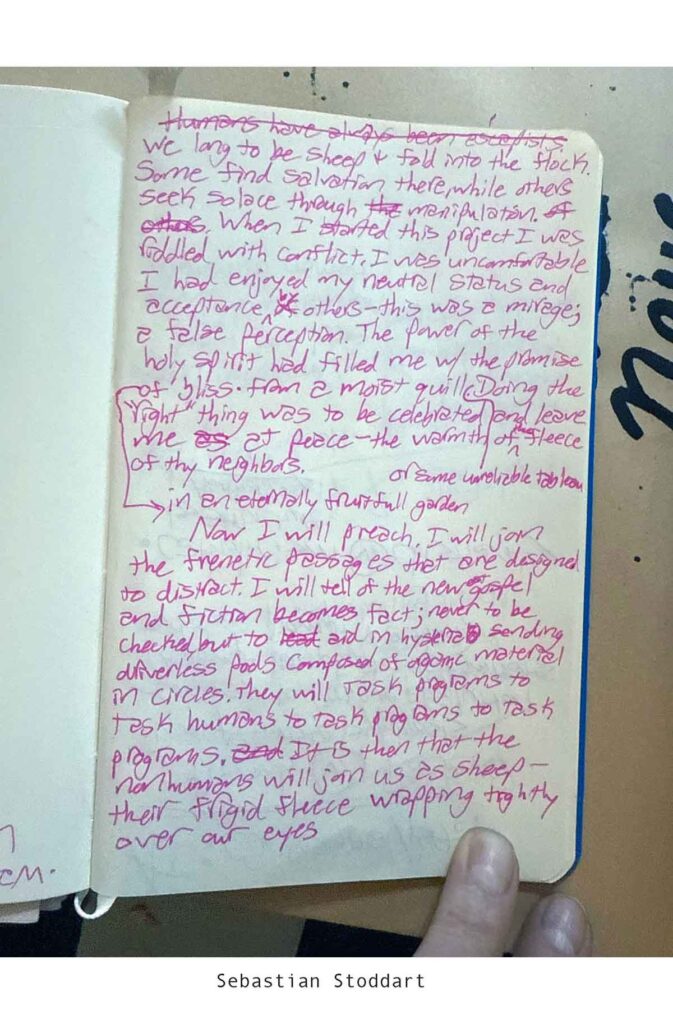 Humans have always been escapists.
We long to be sheep & fold into the flock.
Some find salvation there, while others
seek solace through the manipulation. of
others. When I started this project I was
riddled with conflict. I was uncomfortable
I had enjoyed my neutral status and
acceptance, others – this was a mirage;
a false perception. The power of the
holy spirit had filled me w/ the promise
of bliss. from a moist quill. Doing the
"right" thing was to be celebrated and leave
me as at peace – the warmth of the fleece
of thy neighbors.
or some unreliable tableau
in an eternally fruitfull garden
Now I will preach. I will join
the frenetic passages that are designed
to distract. I will tell of the new gospel
and fiction becomes fact; never to be
checked but to lead aid in hysteria sending
driverless pods composed of organic material
in circles. They will task programs to
task humans to task programs to task
programs. and It is then that the
nonhumans will join us as sheep –
their frigid fleece wrapping tightly
over our eyes
CM.
new
Sebastian Stoddart